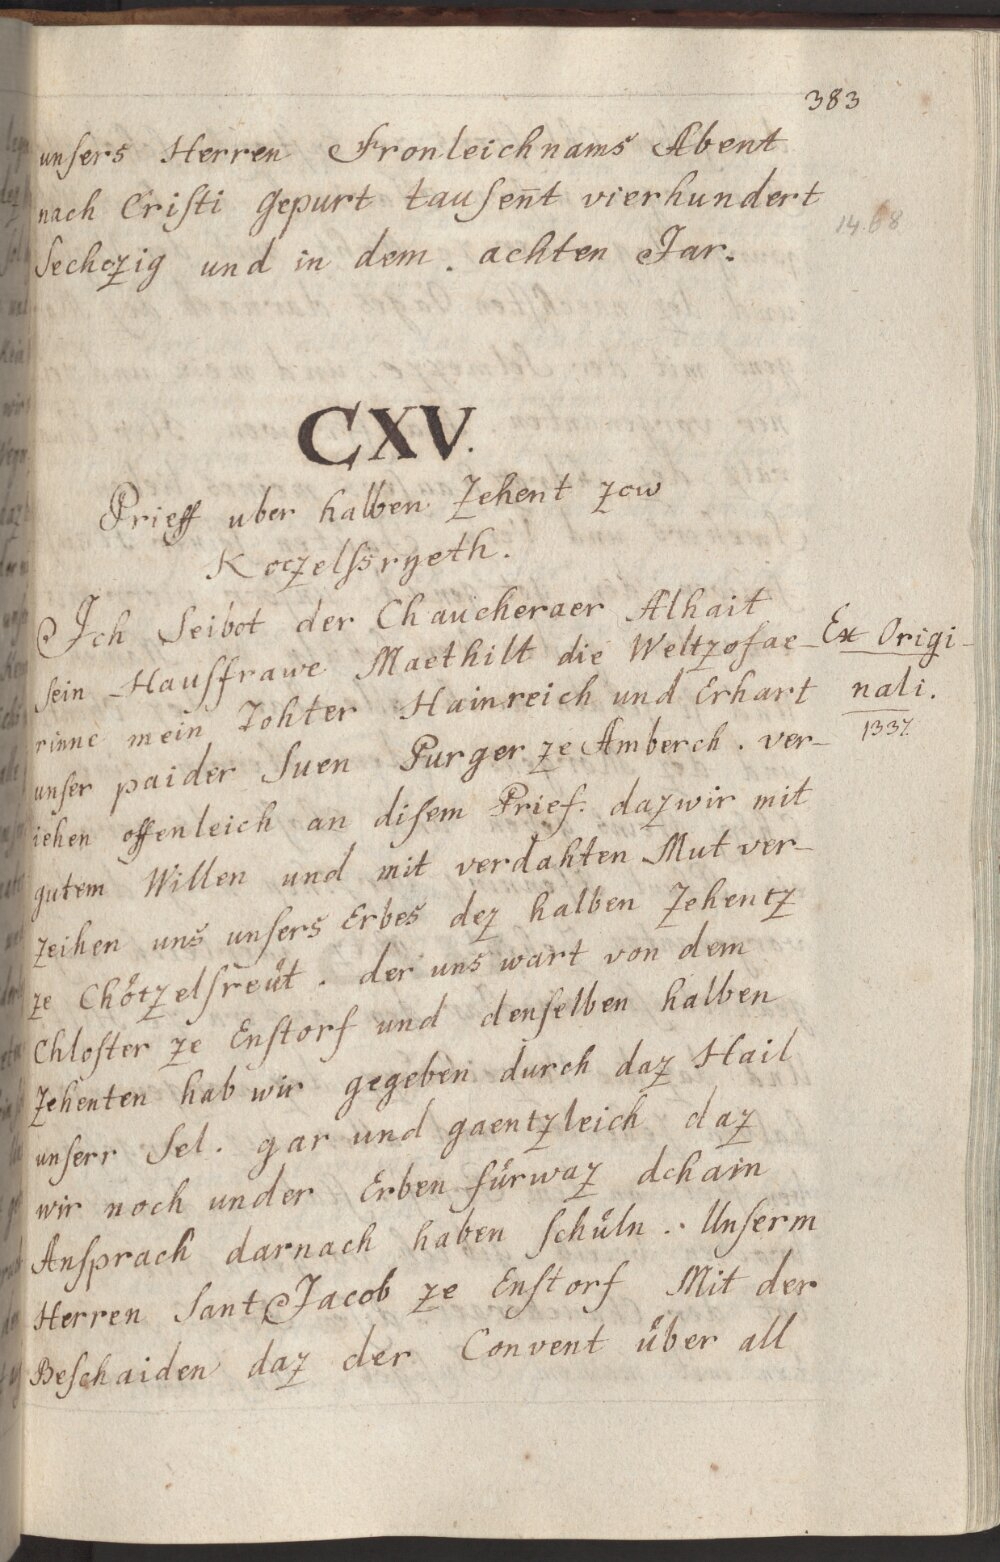 383
unsers Herren Fronleichnams Abent
nach Cristi Gepurt tausen̄t vierhundert
14.68
Sechczig und in dem. achten Jar.
CXV.
Prieff uber halben Zehent zow
Koczelssryeth.
Ich Seibot der Chaucheraer Alhait
sein Hausfrawe Maethilt die Weltzofae-
Ex Origi-
rinne mein Tohter Hainreich und Erhart
nali.
unser paider Suen Purger ze Amberch. ver-
1337.
iehen offenleich an disem Prief. daz wir mit
gutem Willen und mit verdahten Mut ver-
zeihen uns unsers Erbes dez halben Zehentz
ze Chötzelsreüt. der uns wart von dem
Chloster ze Enstorf und denselben halben
Zehenten hab wir gegeben durch daz Hail
unserr Sel. gar und gaentzleich daz
wir noch under Erben fürwaz dchain
Ansprach darnach haben schüln. Unserm
Herren Sant Jacob ze Enstorf Mit der
Beschaiden daz der Convent über all